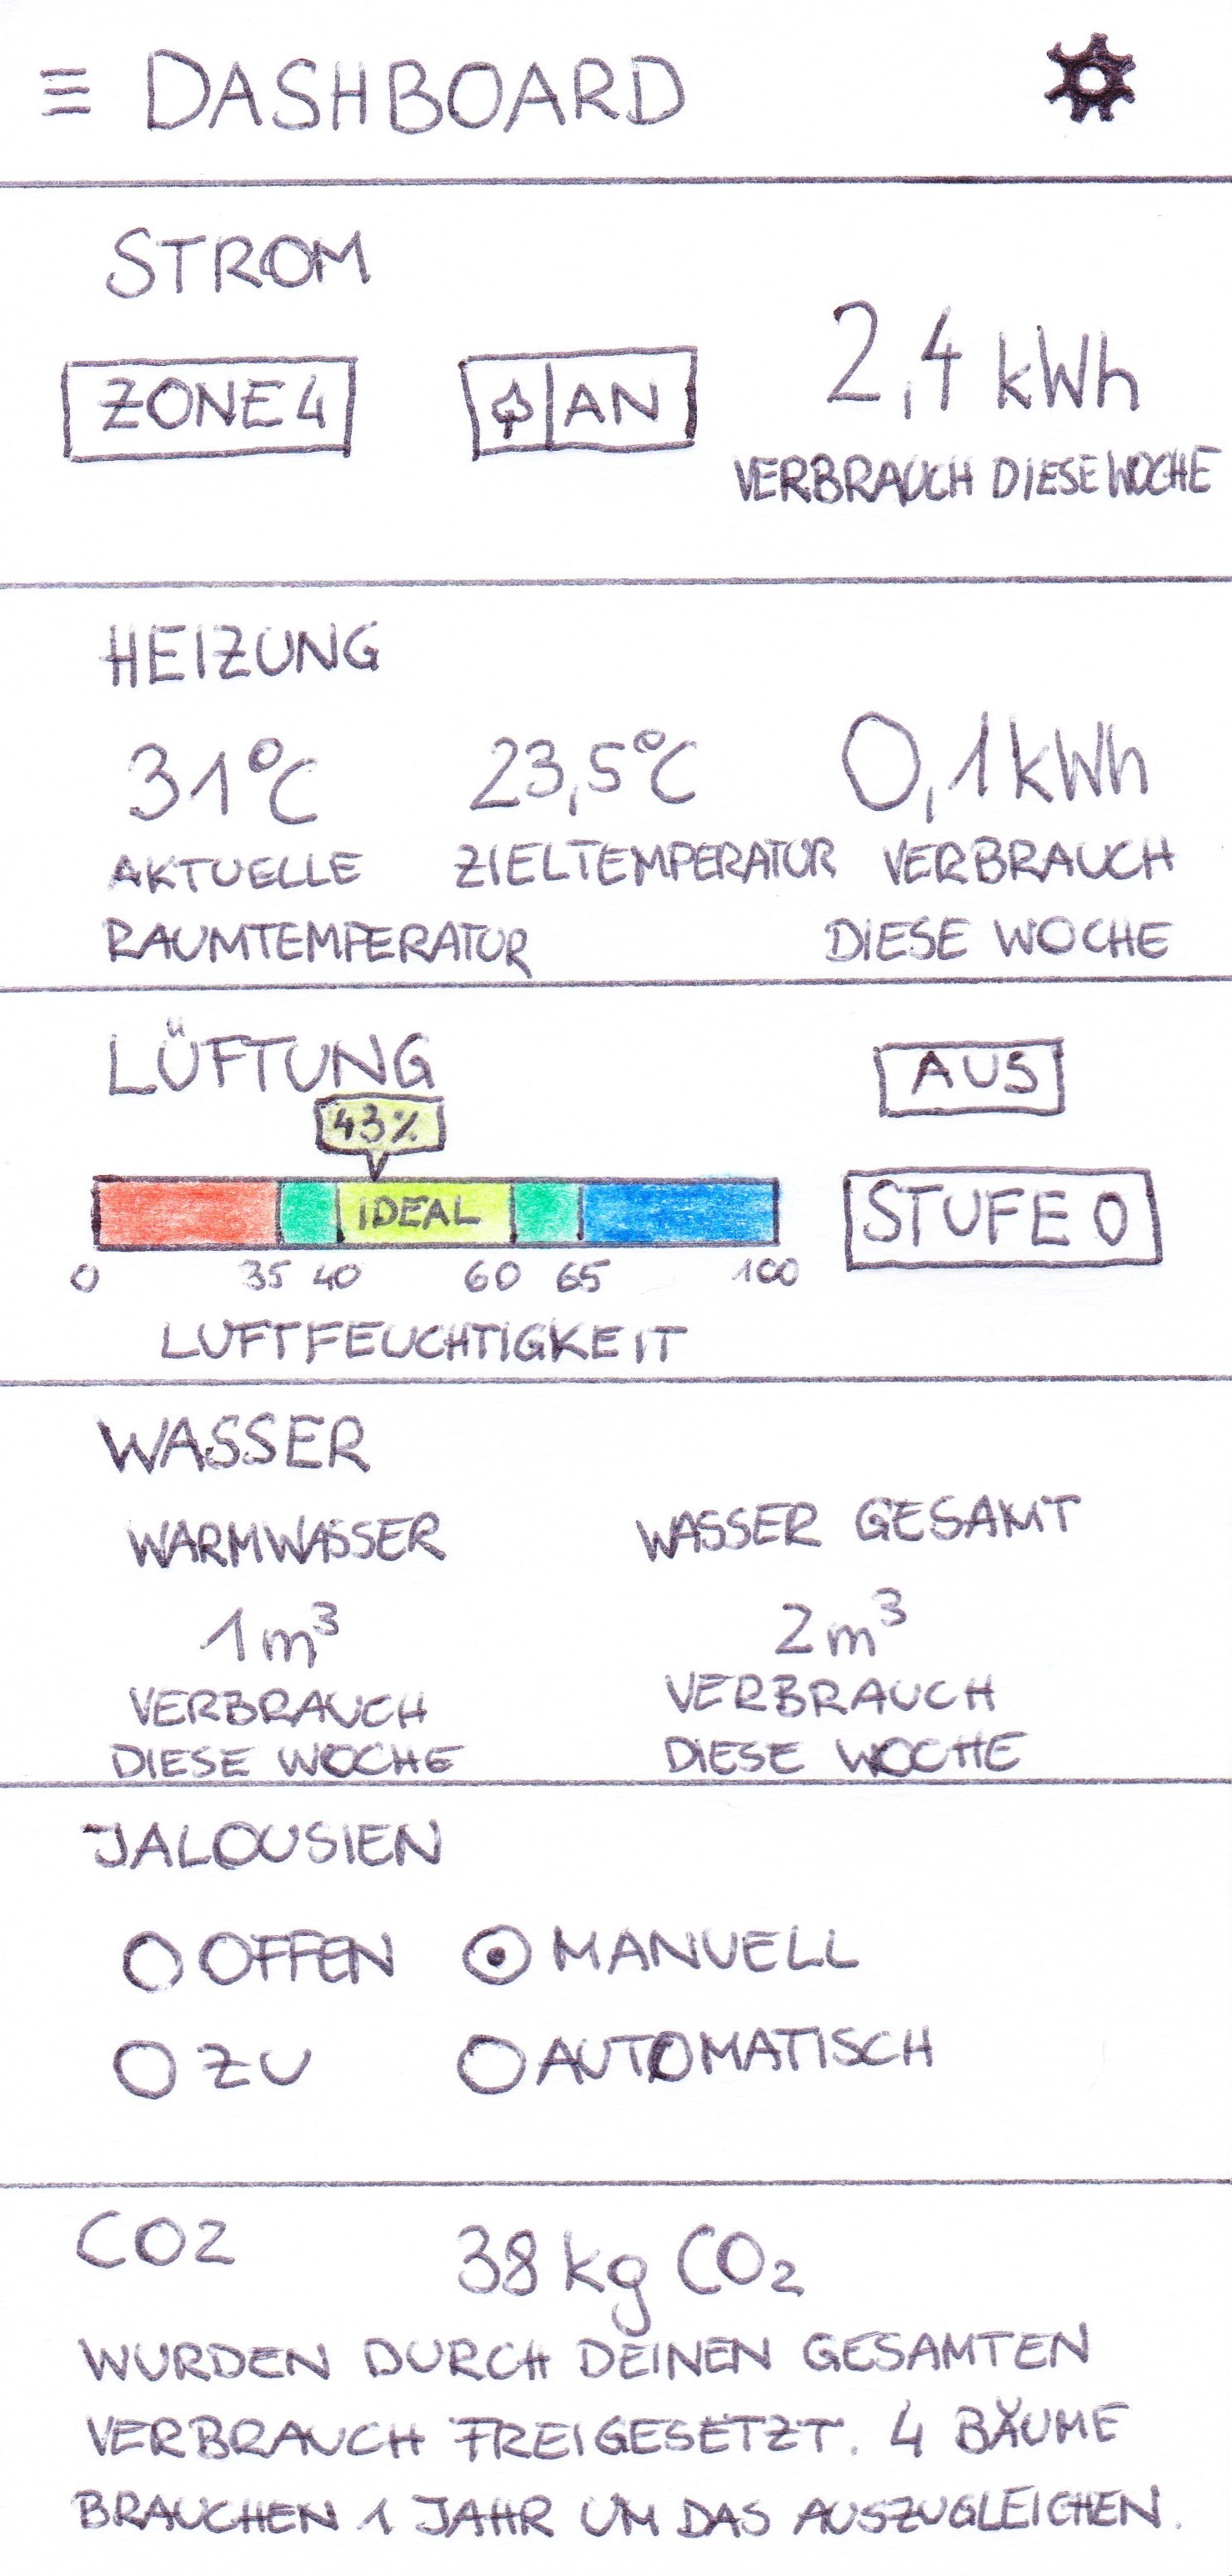 DASHBOARD
STROM
ZONE 4
AN
2,4 kWh
VERBRAUCH DIESE WOCHE
HEIZUNG
31°C
23,5°C
0,1 kWh
AKTUELLE
ZIELTEMPERATUR
VERBRAUCH
RAUMTEMPERATUR
DIESE WOCHE
LÜFTUNG
AUS
43%
IDEAL
STUFE 0
0 35 40 60 65 100
LUFTFEUCHTIGKEIT
WASSER
WARMWASSER
1 m³
VERBRAUCH
DIESE WOCHE
WASSER GESAMT
2 m³
VERBRAUCH
DIESE WOCHE
JALOUSIEN
OFFEN
MANUELL
ZU
AUTOMATISCH
CO2
38 kg CO₂
WURDEN DURCH DEINEN GESAMTEN
VERBRAUCH FREIGESETZT. 4 BÄUME
BRAUCHEN 1 JAHR UM DAS AUSZUGLEICHEN.